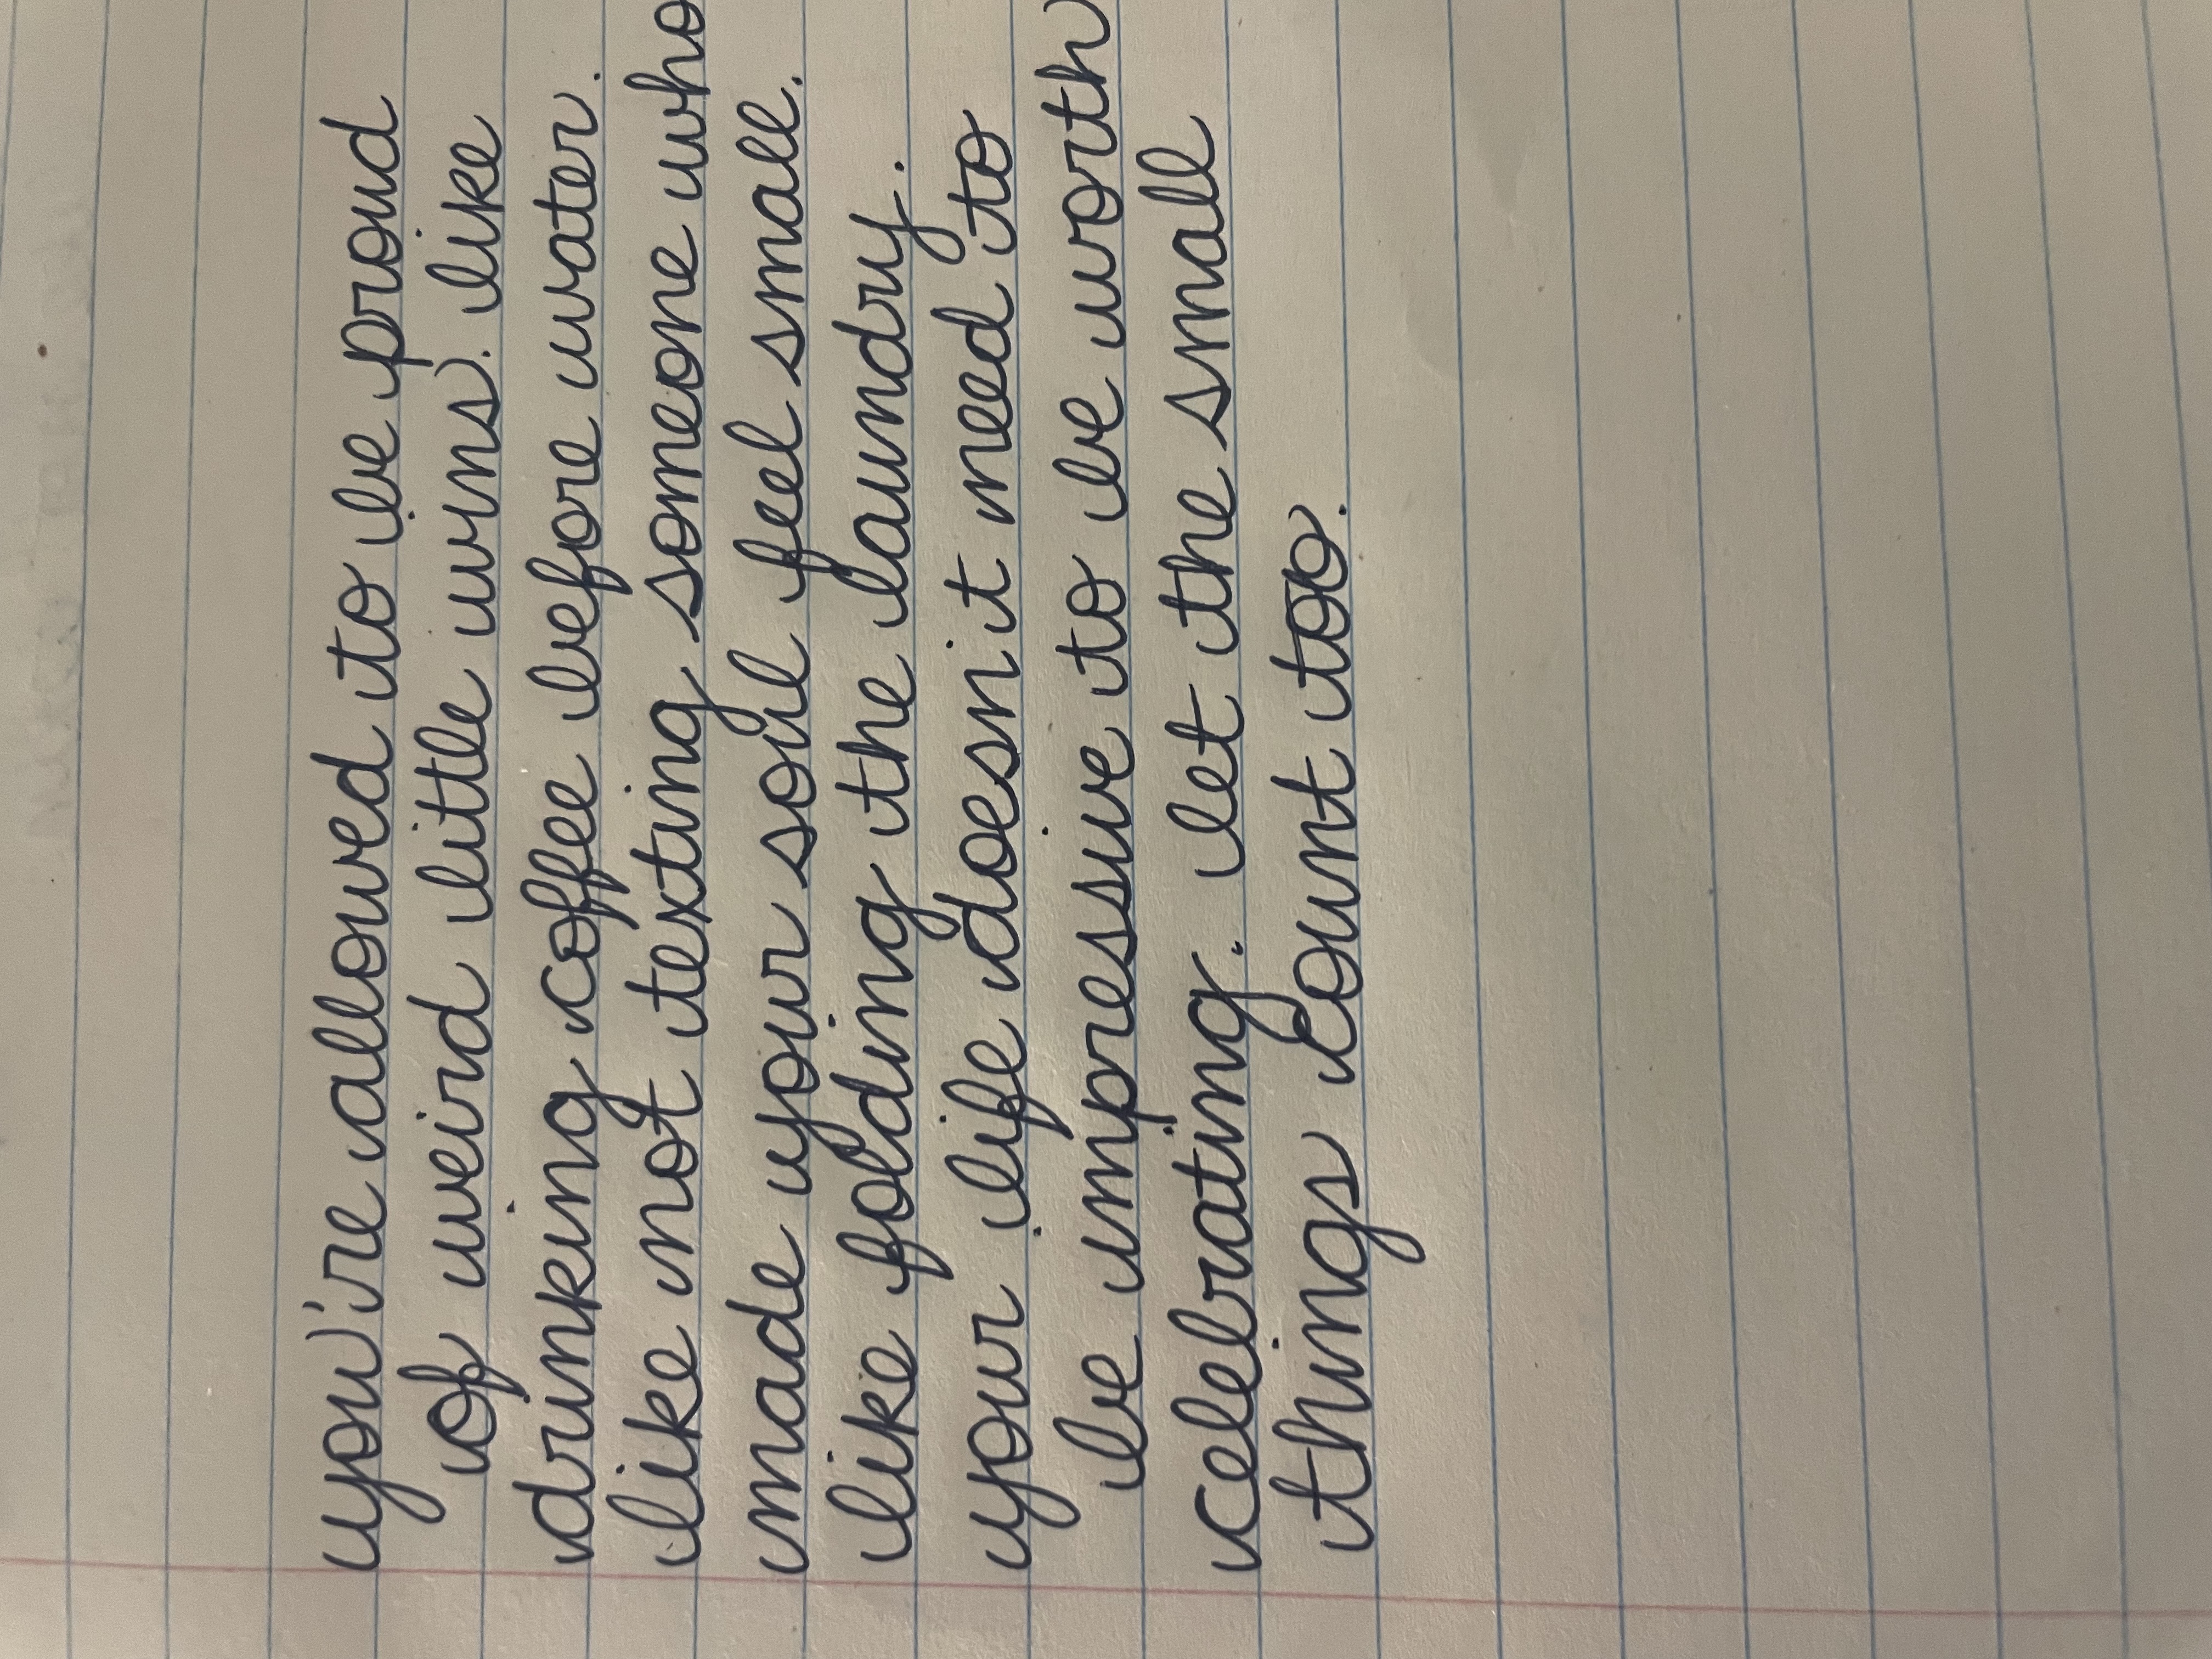 you're allowed to be proud
of weird little wins. like
drinking coffee before water.
like not texting someone who
made your soul feel small.
like folding the laundry.
your life doesn't need to
be impressive to be worth
celebrating. let the small
things count too.